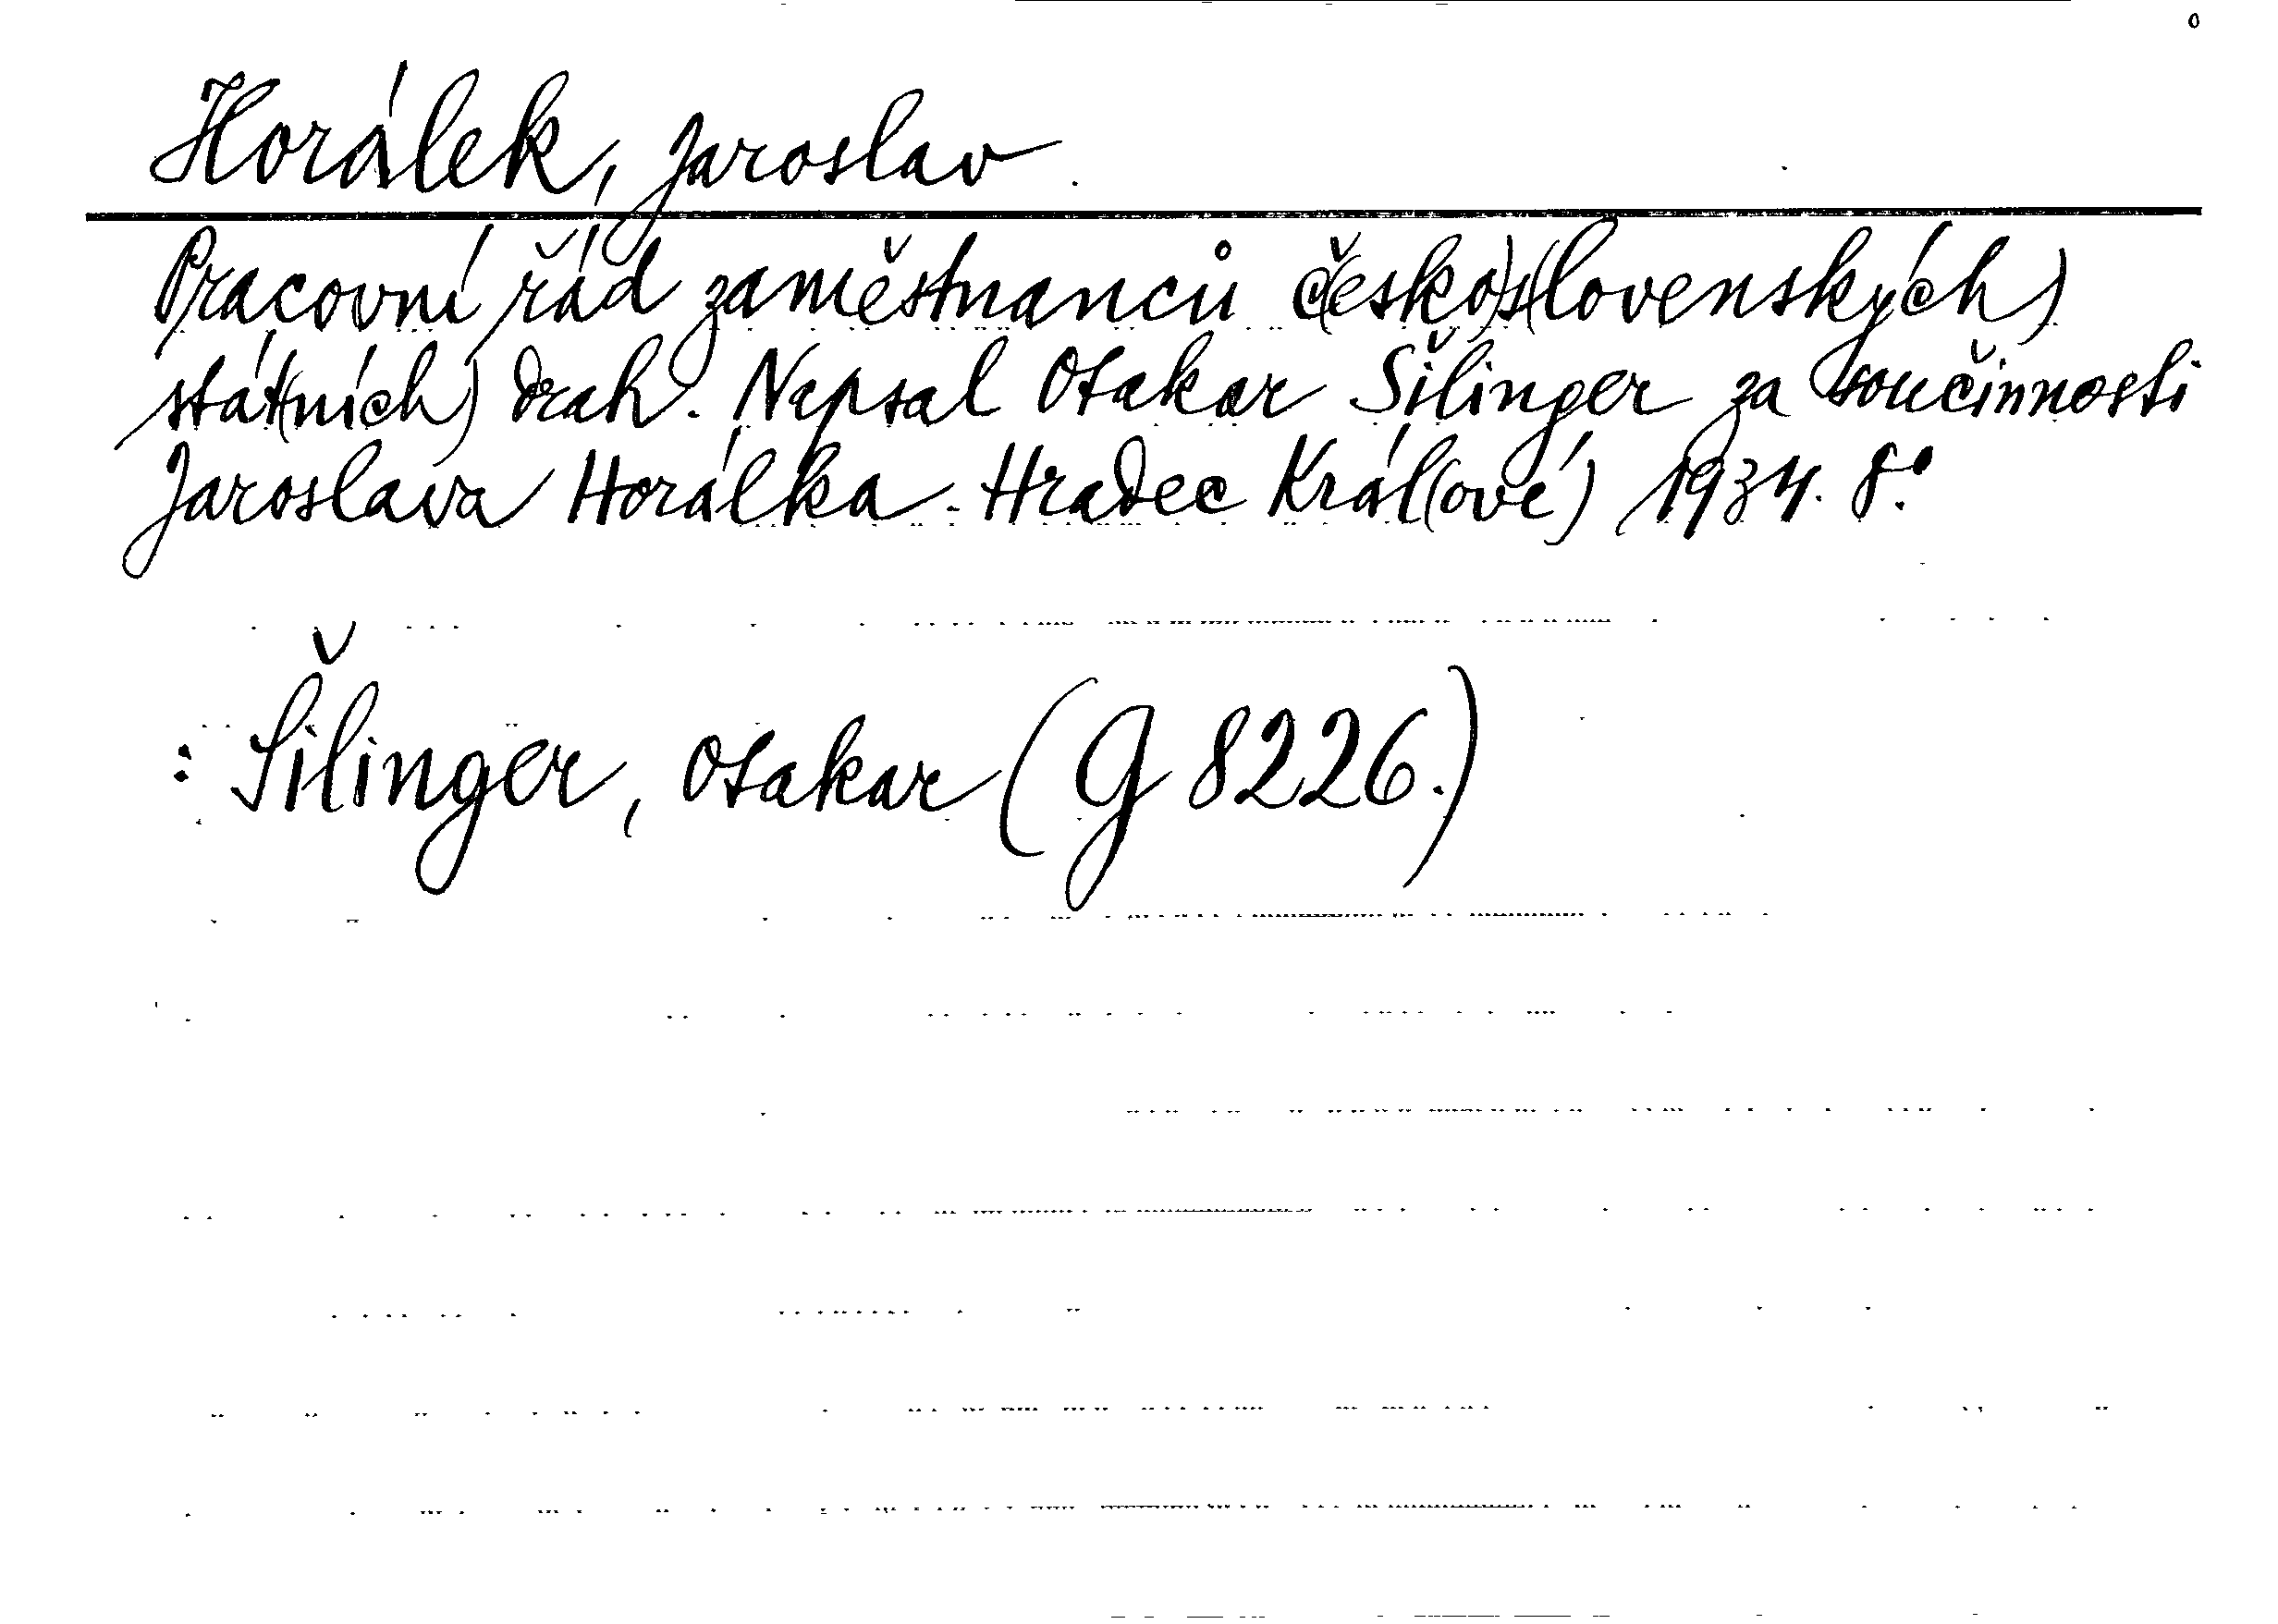 Horálek, Jaroslav
Pracovní řád zaměstnanců č(esko)s(lovenských)
stát(ních) drah. Napsal Otakar Šilinger za součinnosti
Jaroslava Horálka. Hradec Král(ové) 1934. 8.°
: Šilinger, Otakar (G 8226.)